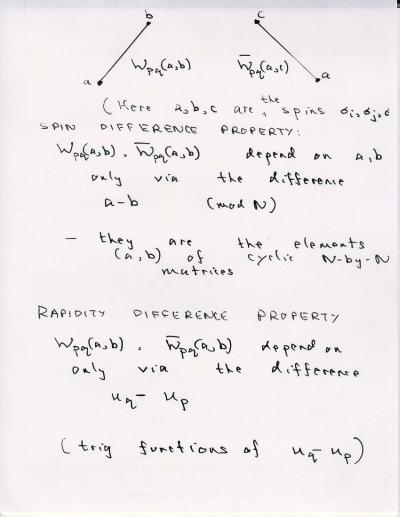 b
c
W_pq(a,b)
W̅_pq(a,c)
a
a
(Here a,b,c are the spins σ_i, σ_j,
SPIN DIFFERENCE PROPERTY:
W_pq(a,b), W̅_pq(a,b) depend on a,b
only via the difference
a-b (mod N)
- they are the elements
(a,b) of cyclic N-by-N
matrices
RAPIDITY DIFFERENCE PROPERTY
W_pq(a,b), W̅_pq(a,b) depend on
only via the difference
u_q - u_p
(trig functions of u_q - u_p)